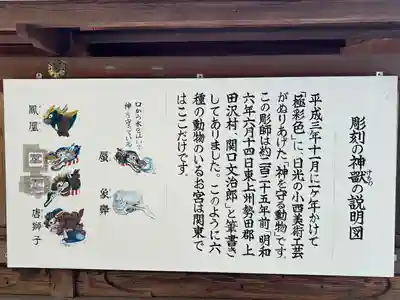 彫刻の神獣の説明図
平成三年十一月に六年かけて
「極彩色」に、日光の小西美術工芸
がぬりあげた、神を守る動物です。
この彫師は約二百二十五年前「明和
六年六月十四日東上州勢田郡上
田沢村、関口文治郎」と筆書き
してありました。このように六
種の動物のいるお宮は関東で
はここだけです。
口から水をはいて
神を守っている
蜃
象
鳳凰
唐獅子